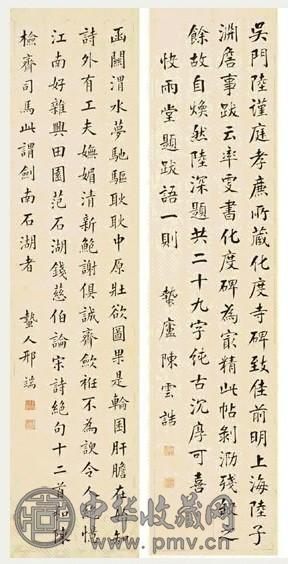 吳門陸謹庭孝廉所藏化度寺碑致佳前明上海陸子
淵詹事跋云率更書化度碑為最精此帖剝泐殘缺之
餘故自煥然陸深題共二十九字純古沉厚可喜
快雨堂題跋語一則 蟄廬陳雲誥
函關渭水夢馳驅耿耿中原壯欲圖果是輪囷肝膽在知
詩外有工夫嫵媚清新鮑謝俱誠齋斂衽不為諛令憶
江南好雜興田園范石湖錢慈伯論宋詩絕句十二首和陳
檢齋司馬此謂劍南石湖者 蟄人邢端
中华收藏网
www.pmv.cn